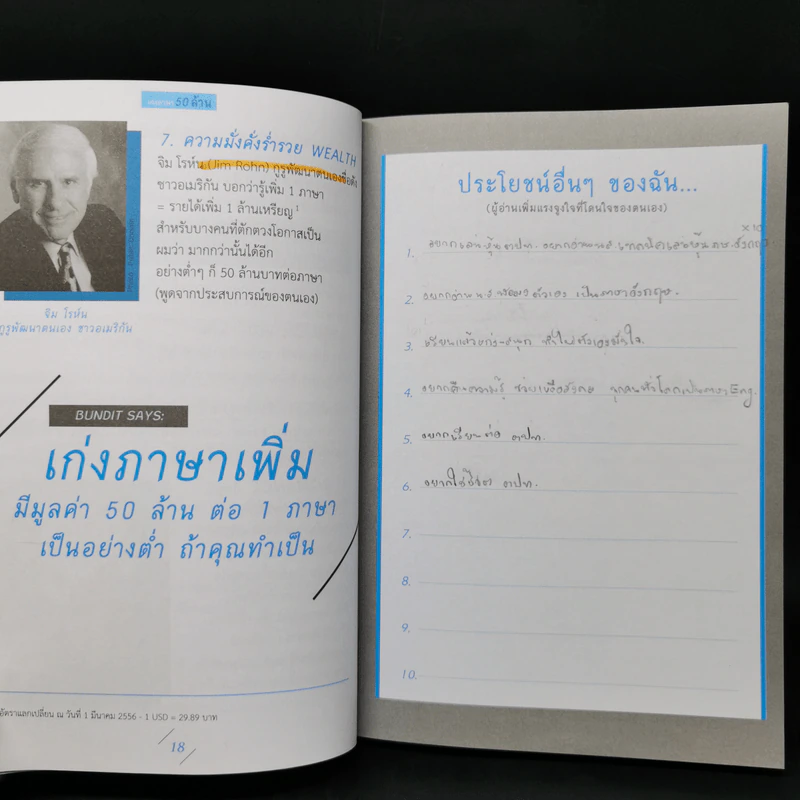 50 ล้าน
7. ความมั่งคั่งร่ำรวย WEALTH
จิม โรห์น (Jim Rohn) กูรูพัฒนาตนเองชื่อดัง
ชาวอเมริกัน บอกว่ารู้เพิ่ม 1 ภาษา
= รายได้เพิ่ม 1 ล้านเหรียญ¹
สำหรับบางคนที่ตักตวงโอกาสเป็น
ผมว่า มากกว่านั้นได้อีก
อย่างต่ำๆ ก็ 50 ล้านบาทต่อภาษา
(พูดจากประสบการณ์ของตนเอง)
จิม โรห์น
กูรูพัฒนาตนเอง ชาวอเมริกัน
BUNDIT SAYS:
เก่งภาษาเพิ่ม
มีมูลค่า 50 ล้าน ต่อ 1 ภาษา
เป็นอย่างต่ำ ถ้าคุณทำเป็น
อัตราแลกเปลี่ยน ณ วันที่ 1 มีนาคม 2556 - 1 USD = 29.89 บาท
18
ประโยชน์อื่นๆ ของฉัน...
(ผู้อ่านเพิ่มแรงจูงใจที่โดนใจของตนเอง)
x 10
1. อยากเล่นหุ้น ตปท.
2. อยากอ่าน ตัวเอง เป็นภาษาอังกฤษ.
3. เรียนแล้วเก่ง-สนุก ทำให้ตัวเองมั่นใจ.
4. อยาก ความรู้ ช่วยเหลือสังคม ทุกคนทั่วโลกเป็นภาษา Eng.
5. อยากเรียนต่อ ตปท.
6. อยากใช้ชีวิต ตปท.
7.
8.
9.
10.